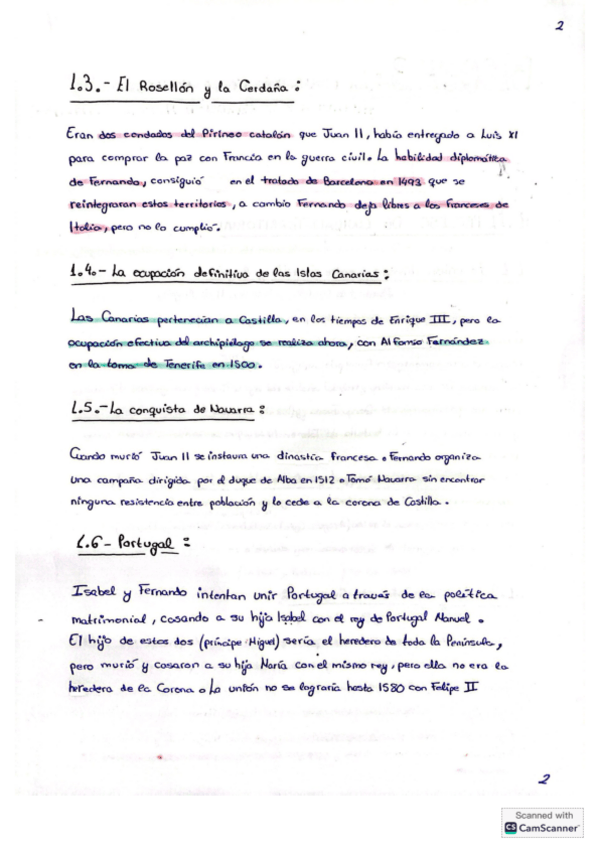 2
1.3.- El Rosellón y la Cerdaña:
Eran dos condados del Pirineo catalán que Juan II, había entregado a Luis XI
para comprar la paz con Francia en la guerra civil. La habilidad diplomática
de Fernando, consiguió en el tratado de Barcelona en 1493 que se
reintegraran estos territorios, a cambio Fernando deja libres a los franceses de
Italia, pero no lo cumplió.
1.4.- La ocupación definitiva de las Islas Canarias:
Las Canarias pertenecian a Castilla, en los tiempos de Enrique III, pero la
ocupación efectiva del archipiélago se realiza ahora, con Alfonso Fernández
en la toma de Tenerife en 1500.
1.5.- La conquista de Navarra:
Cuando murió Juan II se instaura una dinastía francesa. Fernando organiza
una campaña dirigida por el duque de Alba en 1512. Tomó Navarra sin encontrar
ninguna resistencia entre población y lo cede a la corona de Castilla.
1.6 - Portugal:
Isabel y Fernando intentan unir Portugal a través de la política
matrimonial, casando a su hija Isabel con el rey de Portugal Manuel.
El hijo de estos dos (príncipe Miguel) sería el heredero de toda la Península,
pero murió y casaron a su hija María con el mismo rey, pero ella no era la
heredera de la Corona. La unión no se lograría hasta 1580 con Felipe II
2
Scanned with
CS CamScanner